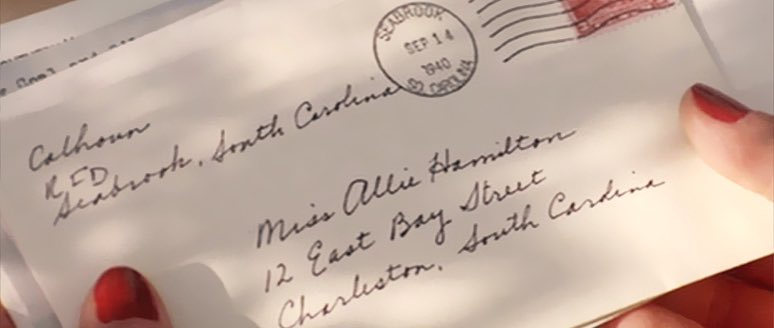 Calhoun
RFD
Seabrook, South Carolina
SEABROOK
SEP 14
1940
CAROLINA
Miss Allie Hamilton
12 East Bay Street
Charleston, South Carolina